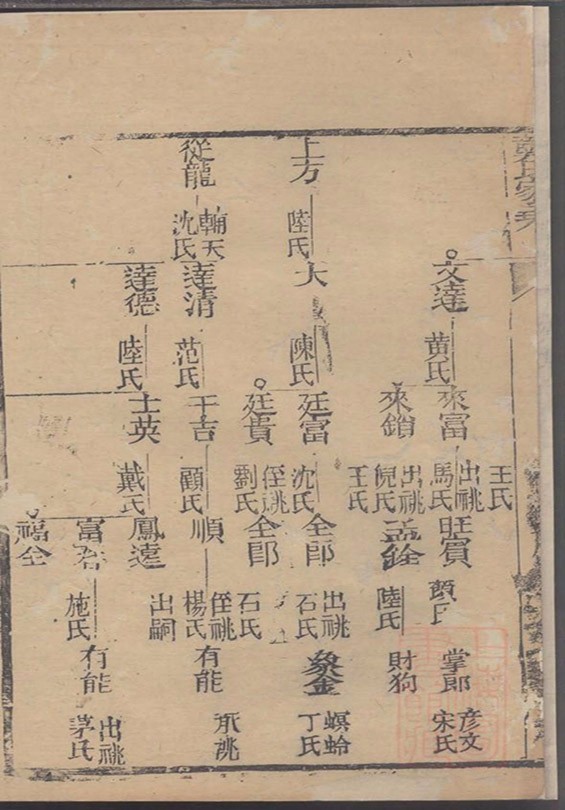 王氏
文達
黃氏
來富
出祧
馬氏
旺賓
顧氏
掌郎
彥文
宋氏
來鎖
出祧
倪氏
王氏
孟銓
陸氏
財狗
上方
陸氏
大
陳氏
廷富
沈氏
全郎
出祧
石氏
象金
螟蛉
丁氏
廷貴
侄祧
劉氏
全郎
石氏
從龍
輔天
沈氏
達清
范氏
于吉
顧氏
順
侄祧
楊氏
有能
承祧
達德
陸氏
士英
戴氏
鳳達
出嗣
富
施氏
有能
出祧
茅氏
福全